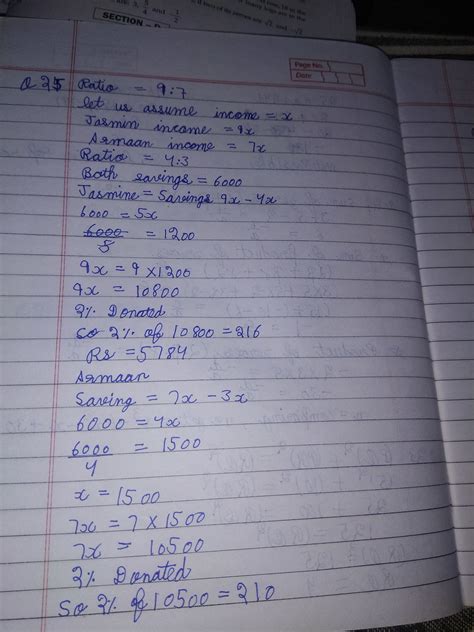 are 3, 5/4 and -3/2
SECTION - D
Page No.
Date
Q 25 Ratio = 9:7
let us assume income = x
Jasmin income = 9x
Armaan income = 7x
Ratio = 4:3
Both savings = 6000
Jasmine = Savings 9x - 4x
6000 = 5x
6000/5 = 1200
9x = 9 × 1200
9x = 10800
2% Donated
So 2% of 10800 = 216
Rs = 5784
Armaan
Saving = 7x - 3x
6000 = 4x
6000/4 = 1500
x = 1500
7x = 7 × 1500
7x = 10500
2% Donated
So 2% of 10500 = 210